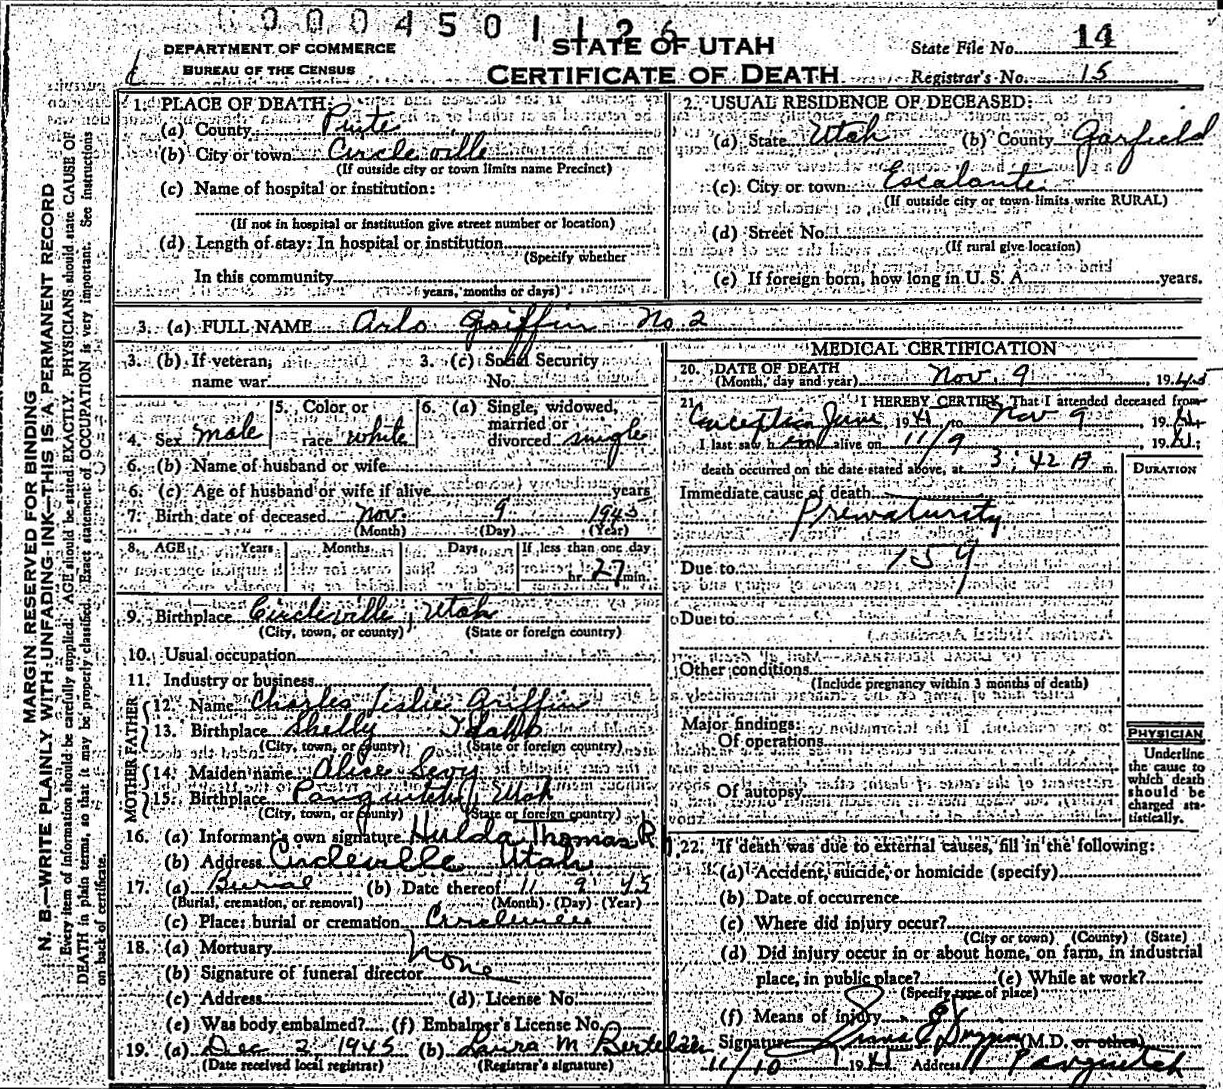 00004501126
DEPARTMENT OF COMMERCE
BUREAU OF THE CENSUS
STATE OF UTAH
CERTIFICATE OF DEATH
State File No. 14
Registrar's No. 15
MARGIN RESERVED FOR BINDING
N. B.—WRITE PLAINLY WITH UNFADING INK—THIS IS A PERMANENT RECORD
Every item of information should be carefully supplied. AGE should be stated EXACTLY. PHYSICIANS should state CAUSE OF
DEATH in plain terms, so that it may be properly classified. Exact statement of OCCUPATION is very important. See instructions
on back of certificate.
1. PLACE OF DEATH:
(a) County Piute
(b) City or town Circleville
(If outside city or town limits name Precinct)
(c) Name of hospital or institution:
(If not in hospital or institution give street number or location)
(d) Length of stay: In hospital or institution
(Specify whether
In this community
years, months or days)
2. USUAL RESIDENCE OF DECEASED:
(a) State Utah (b) County Garfield
(c) City or town Escalante
(If outside city or town limits write RURAL)
(d) Street No.
(If rural give location)
(e) If foreign born, how long in U. S. A. years.
3. (a) FULL NAME Arlo Griffin No. 2
3. (b) If veteran, name war
3. (c) Social Security No.
4. Sex male
5. Color or race white
6. (a) Single, widowed, married or divorced single
6. (b) Name of husband or wife
6. (c) Age of husband or wife if alive years
7. Birth date of deceased Nov. 9 1945
(Month) (Day) (Year)
8. AGE Years Months Days If less than one day
hr. 27 min.
9. Birthplace Circleville, Utah
(City, town, or county) (State or foreign country)
10. Usual occupation
11. Industry or business
FATHER
12. Name Charles Leslie Griffin
13. Birthplace Shelly Idaho
(City, town, or county) (State or foreign country)
MOTHER
14. Maiden name Alice Sevy
15. Birthplace Panguitch, Utah
(City, town, or county) (State or foreign country)
16. (a) Informant's own signature Hulda Thomas R
(b) Address Circleville Utah
17. (a) Burial (b) Date thereof 11 9 45
(Burial, cremation, or removal) (Month) (Day) (Year)
(c) Place: burial or cremation Circleville
18. (a) Mortuary None
(b) Signature of funeral director
(c) Address (d) License No.
(e) Was body embalmed? (f) Embalmer's License No.
19. (a) Dec 2, 1945 (b) Laura M Bertelsen
(Date received local registrar) (Registrar's signature)
MEDICAL CERTIFICATION
20. DATE OF DEATH
(Month, day and year) Nov. 9, 1945
21. I HEREBY CERTIFY, That I attended deceased from
Conception June, 19 to Nov 9, 19
I last saw h alive on 11/9 19
death occurred on the date stated above, at 3:42 A m.
DURATION
Immediate cause of death
Prematurity
159
Due to
Due to
Other conditions
(Include pregnancy within 3 months of death)
Major findings:
Of operations
Of autopsy
PHYSICIAN
Underline
the cause to
which death
should be
charged sta-
tistically.
22. If death was due to external causes, fill in the following:
(a) Accident, suicide, or homicide (specify)
(b) Date of occurrence
(c) Where did injury occur?
(City or town) (County) (State)
(d) Did injury occur in or about home, on farm, in industrial
place, in public place? (e) While at work?
(Specify type of place)
(f) Means of injury
23. Signature (M.D. or other)
11/10 19 Address Panguitch